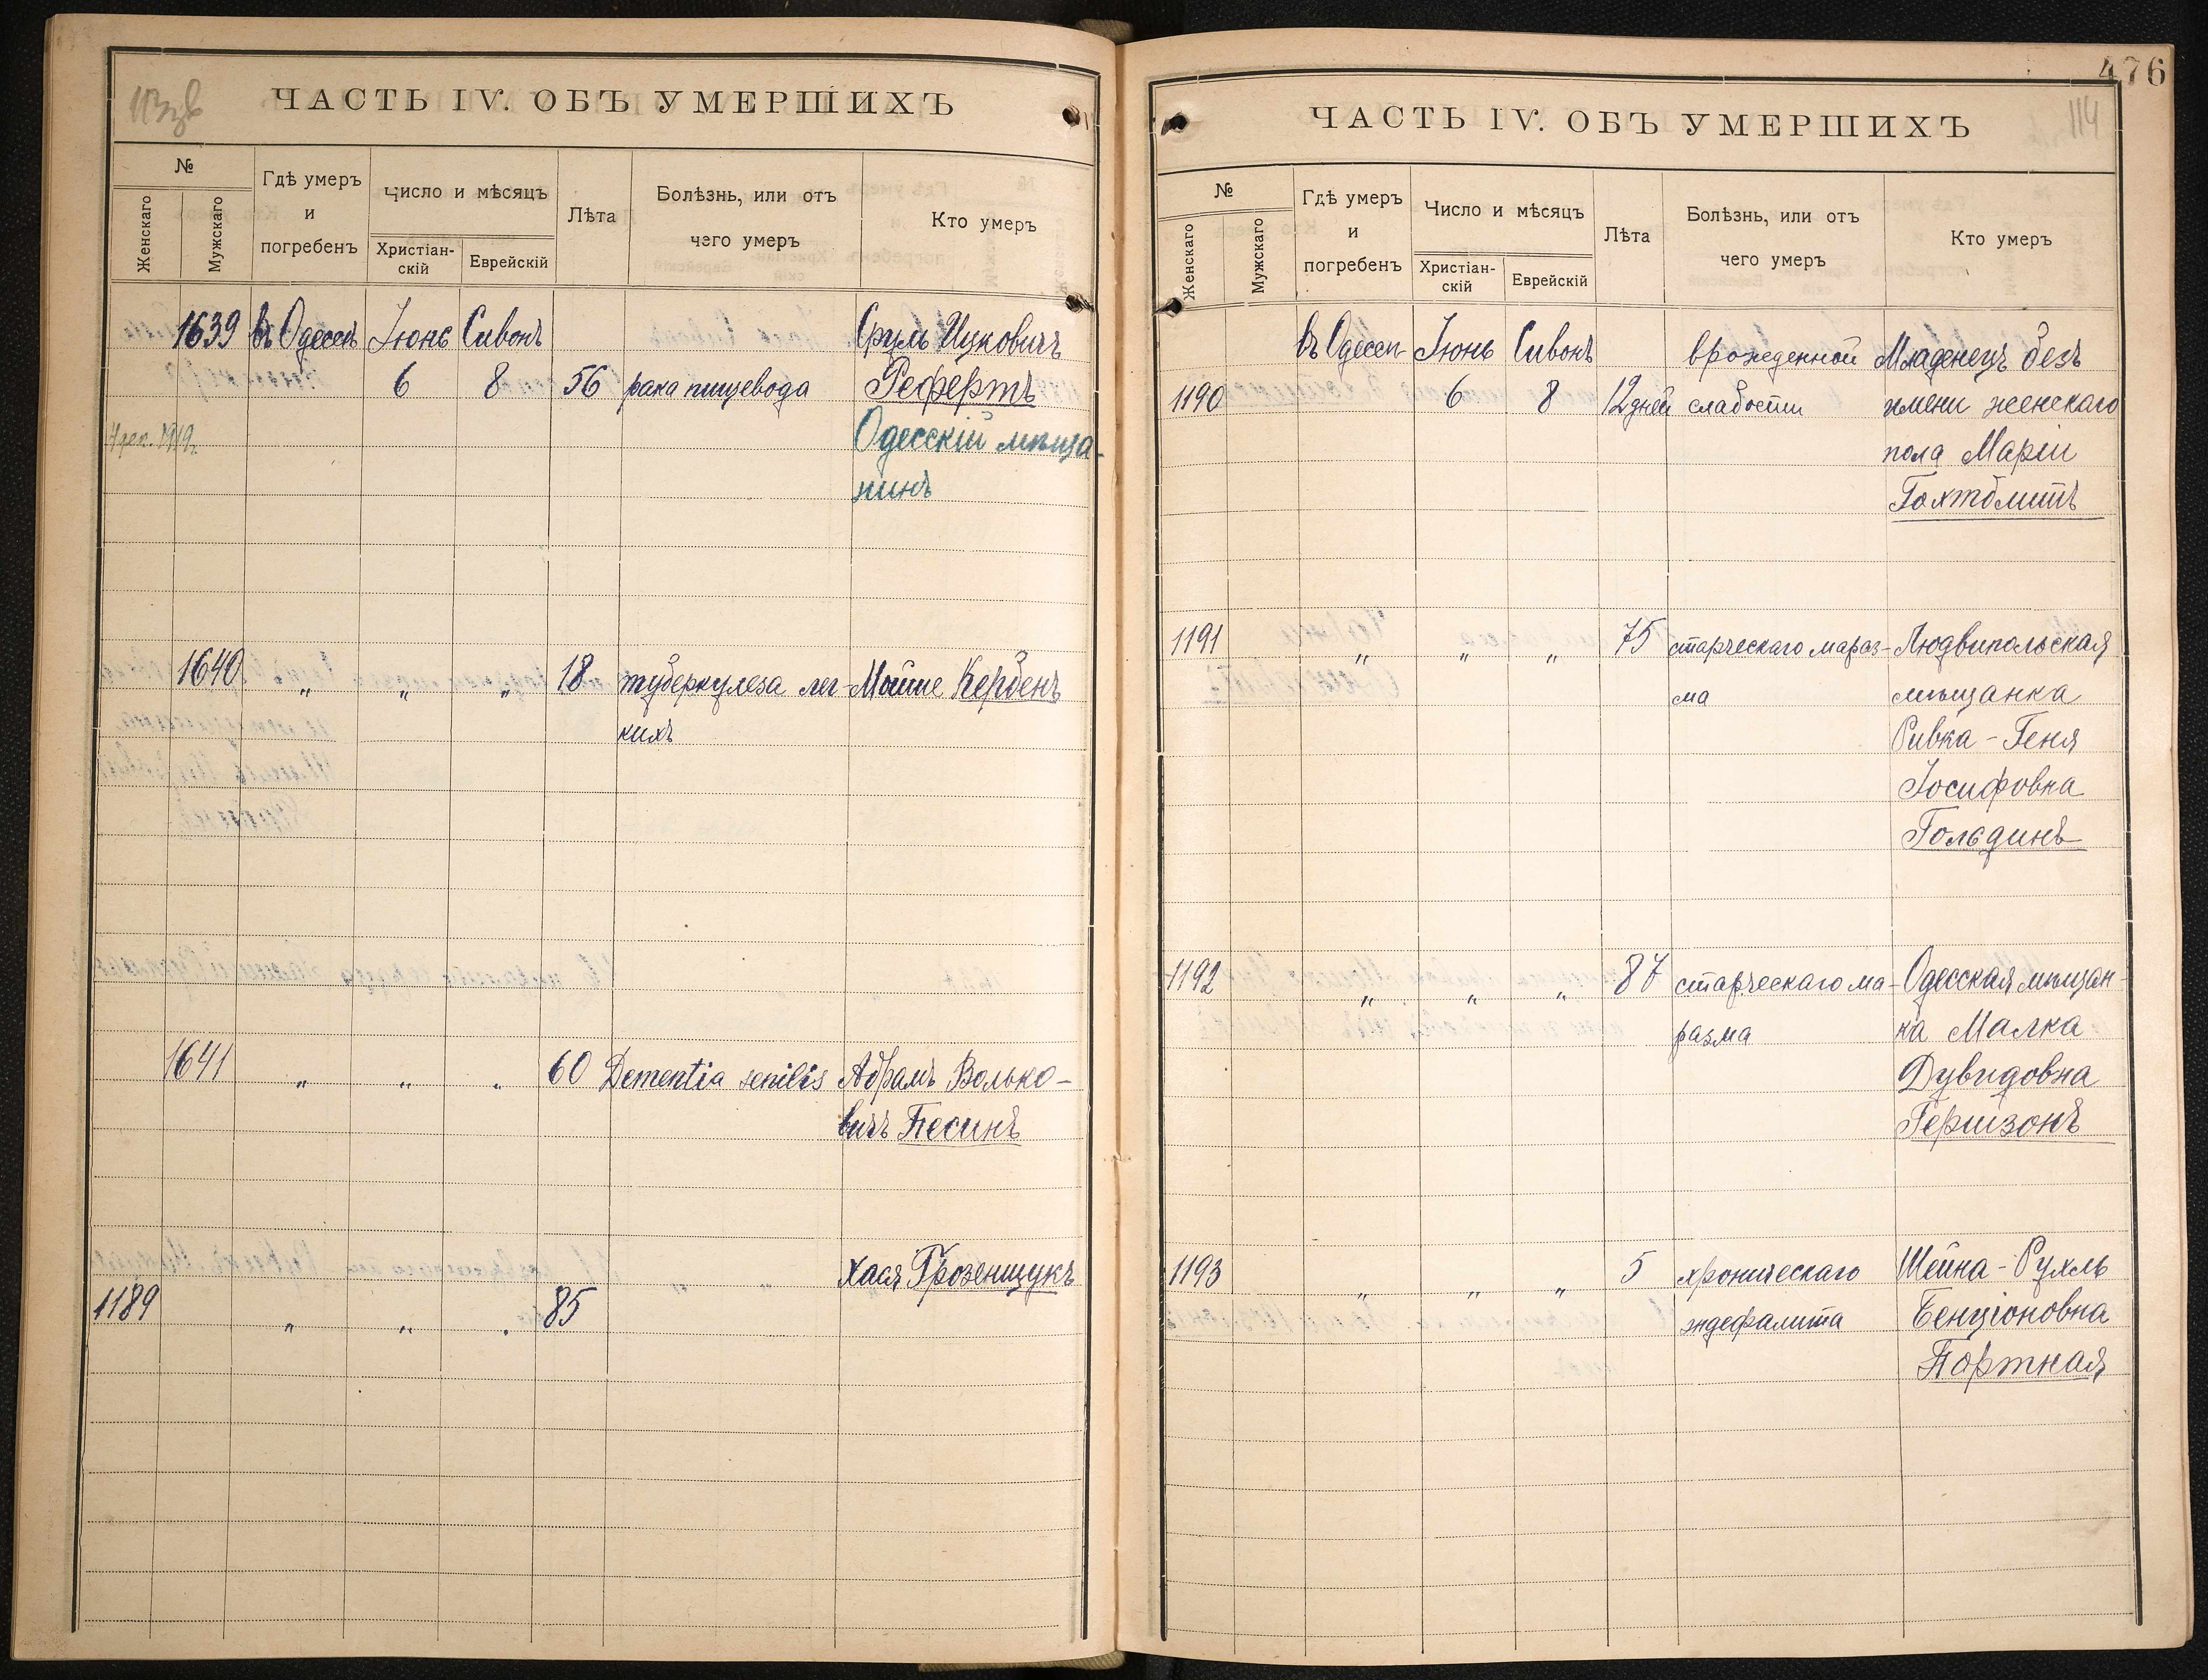 ЧАСТЬ IV. ОБЪ УМЕРШИХЪ
№
Женскаго
Мужскаго
Гдѣ умеръ
и
погребенъ
Число и мѣсяцъ
Христіан-
скій
Еврейскій
Лѣта
Болѣзнь, или отъ
чего умеръ
Кто умеръ
1639 въ Одессѣ Іюнь Сивонъ Сруль Ицковичъ
6 8 56 рака пищевода Рефертъ
1919. Одесскій мѣща-
нинъ
1640 „ „ „ 18 туберкулеза лег- Мойше Кербенъ
кихъ
1641 „ „ „ 60 Dementia senilis Абрамъ Волько-
вичъ Песинъ
Хася Грозенщукъ
1189 „ „ „ 85
476
114
ЧАСТЬ IV. ОБЪ УМЕРШИХЪ
№
Женскаго
Мужскаго
Гдѣ умеръ
и
погребенъ
Число и мѣсяцъ
Христіан-
скій
Еврейскій
Лѣта
Болѣзнь, или отъ
чего умеръ
Кто умеръ
въ Одессѣ Іюнь Сивонъ врожденной Младенецъ безъ
1190 6 8 12 дней слабости имени женскаго
пола Маріи
Гохтблитъ
1191 „ „ „ 75 старческаго мараз- Людвипольская
ма мѣщанка
Ривка-Геня
Іосифовна
Гольдинъ
1192 „ „ „ 87 старческаго ма- Одесская мѣщан-
разма ка Малка
Дувидовна
Гершзонъ
1193 „ „ „ 5 хроническаго Шейна-Рухль
энцефалита Бенціоновна
Портная